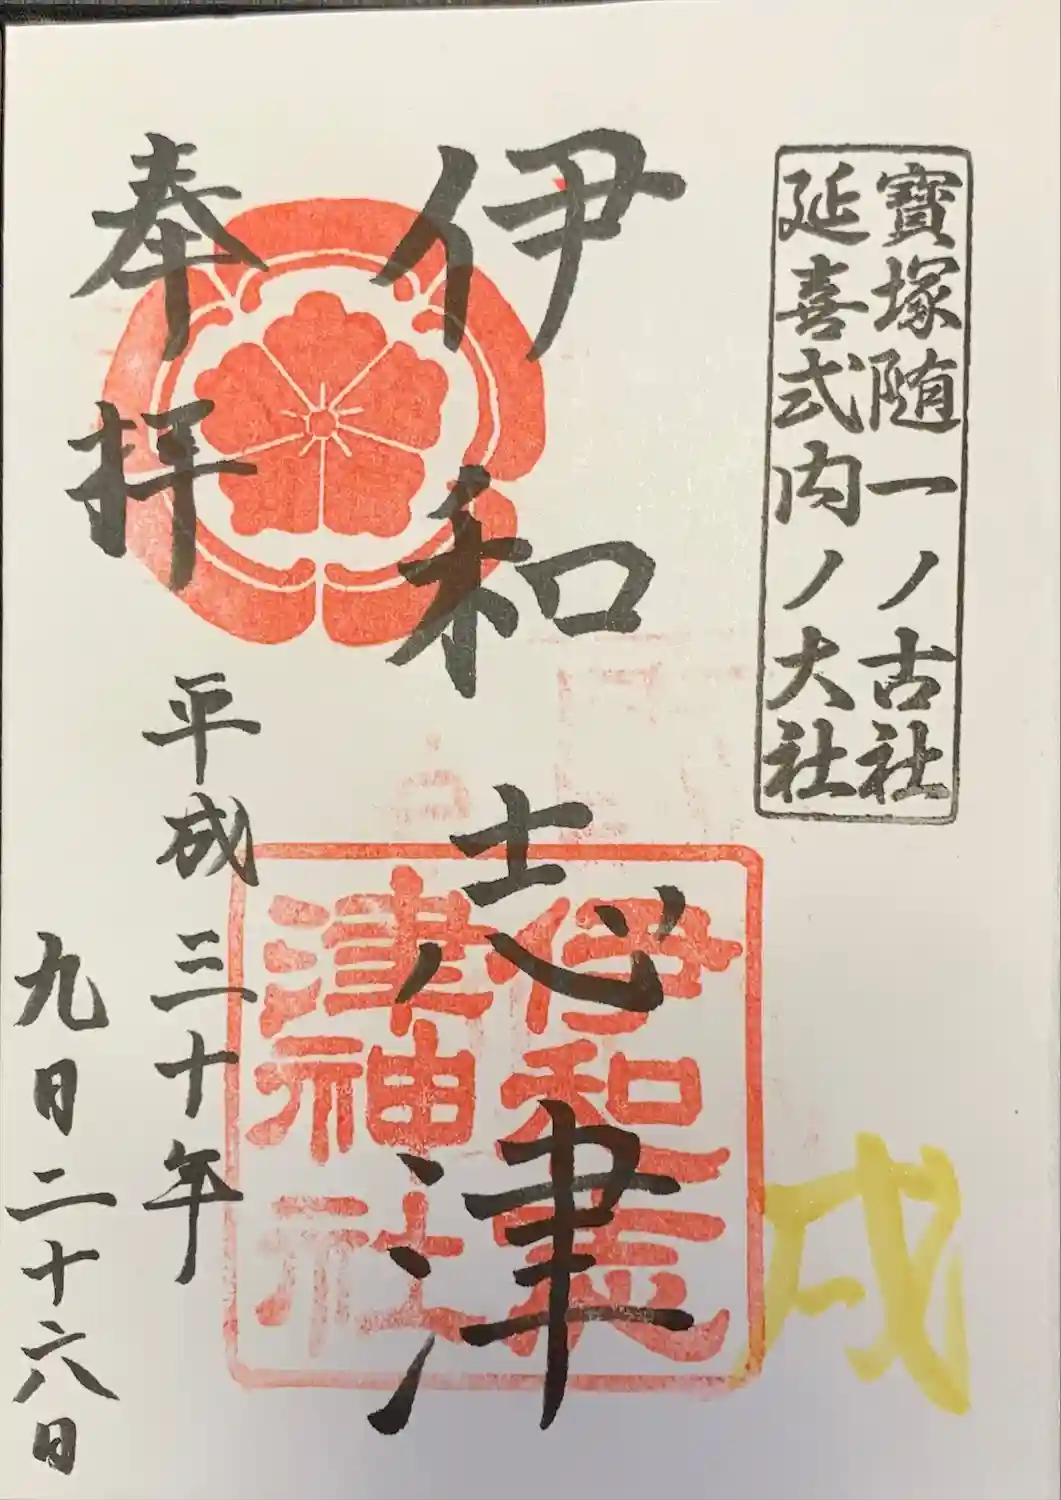 寶塚随一ノ古社
延喜式内ノ大社
伊和志津
奉拝
平成三十年
九日二十六日
伊和志
津神社
戌